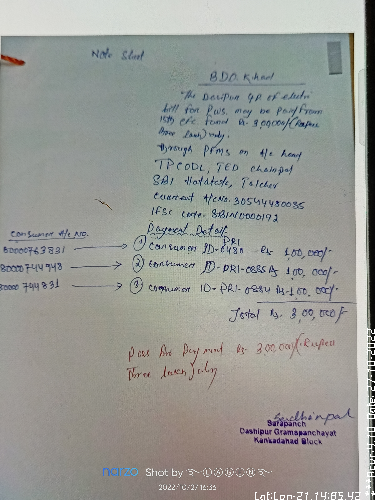 Note Sheet
B.D.O. K.had
The Dasipur GP of electric
bill for PWS. may be paid from
15th CFC fund Rs. 3,00,000/- (Rupees
three lakh) only.
through PFMS on A/c head
TPCODL, TED Chainpal
SBI Hatatota, Talcher
Current A/c No. 30544480035
IFSC code- SBIN0000192
Payment Details
Consumer A/c No.
80000763831 → ① Consumer ID- PRI-0480 Rs 100,000/-
80000744948 → ② Consumer ID-PRI-0885 Rs 100,000/-
80000794831 → ③ Consumer ID-PRI-0884 Rs 100,000/-
Total Rs. 3,00,000/-
Pass for Payment Rs 300,000/- (Rupees
Three lakh) only
Sarapanch
Dashipur Gramapanchayat
Kankadahad Block
Shot by
2022/10/27 16:35
Lat:Lon-21.14:85.42
Date:27-10-2022